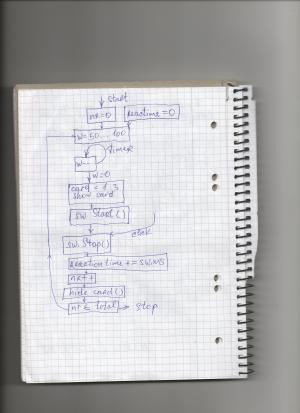 start
nr=0
reactime=0
w=50...100
timer
w--
w=0
card = 1,3
show card
sw. Start()
click
sw. Stop()
Reaction time += sw.MS
nr++
hide card()
nr ≤ total
stop